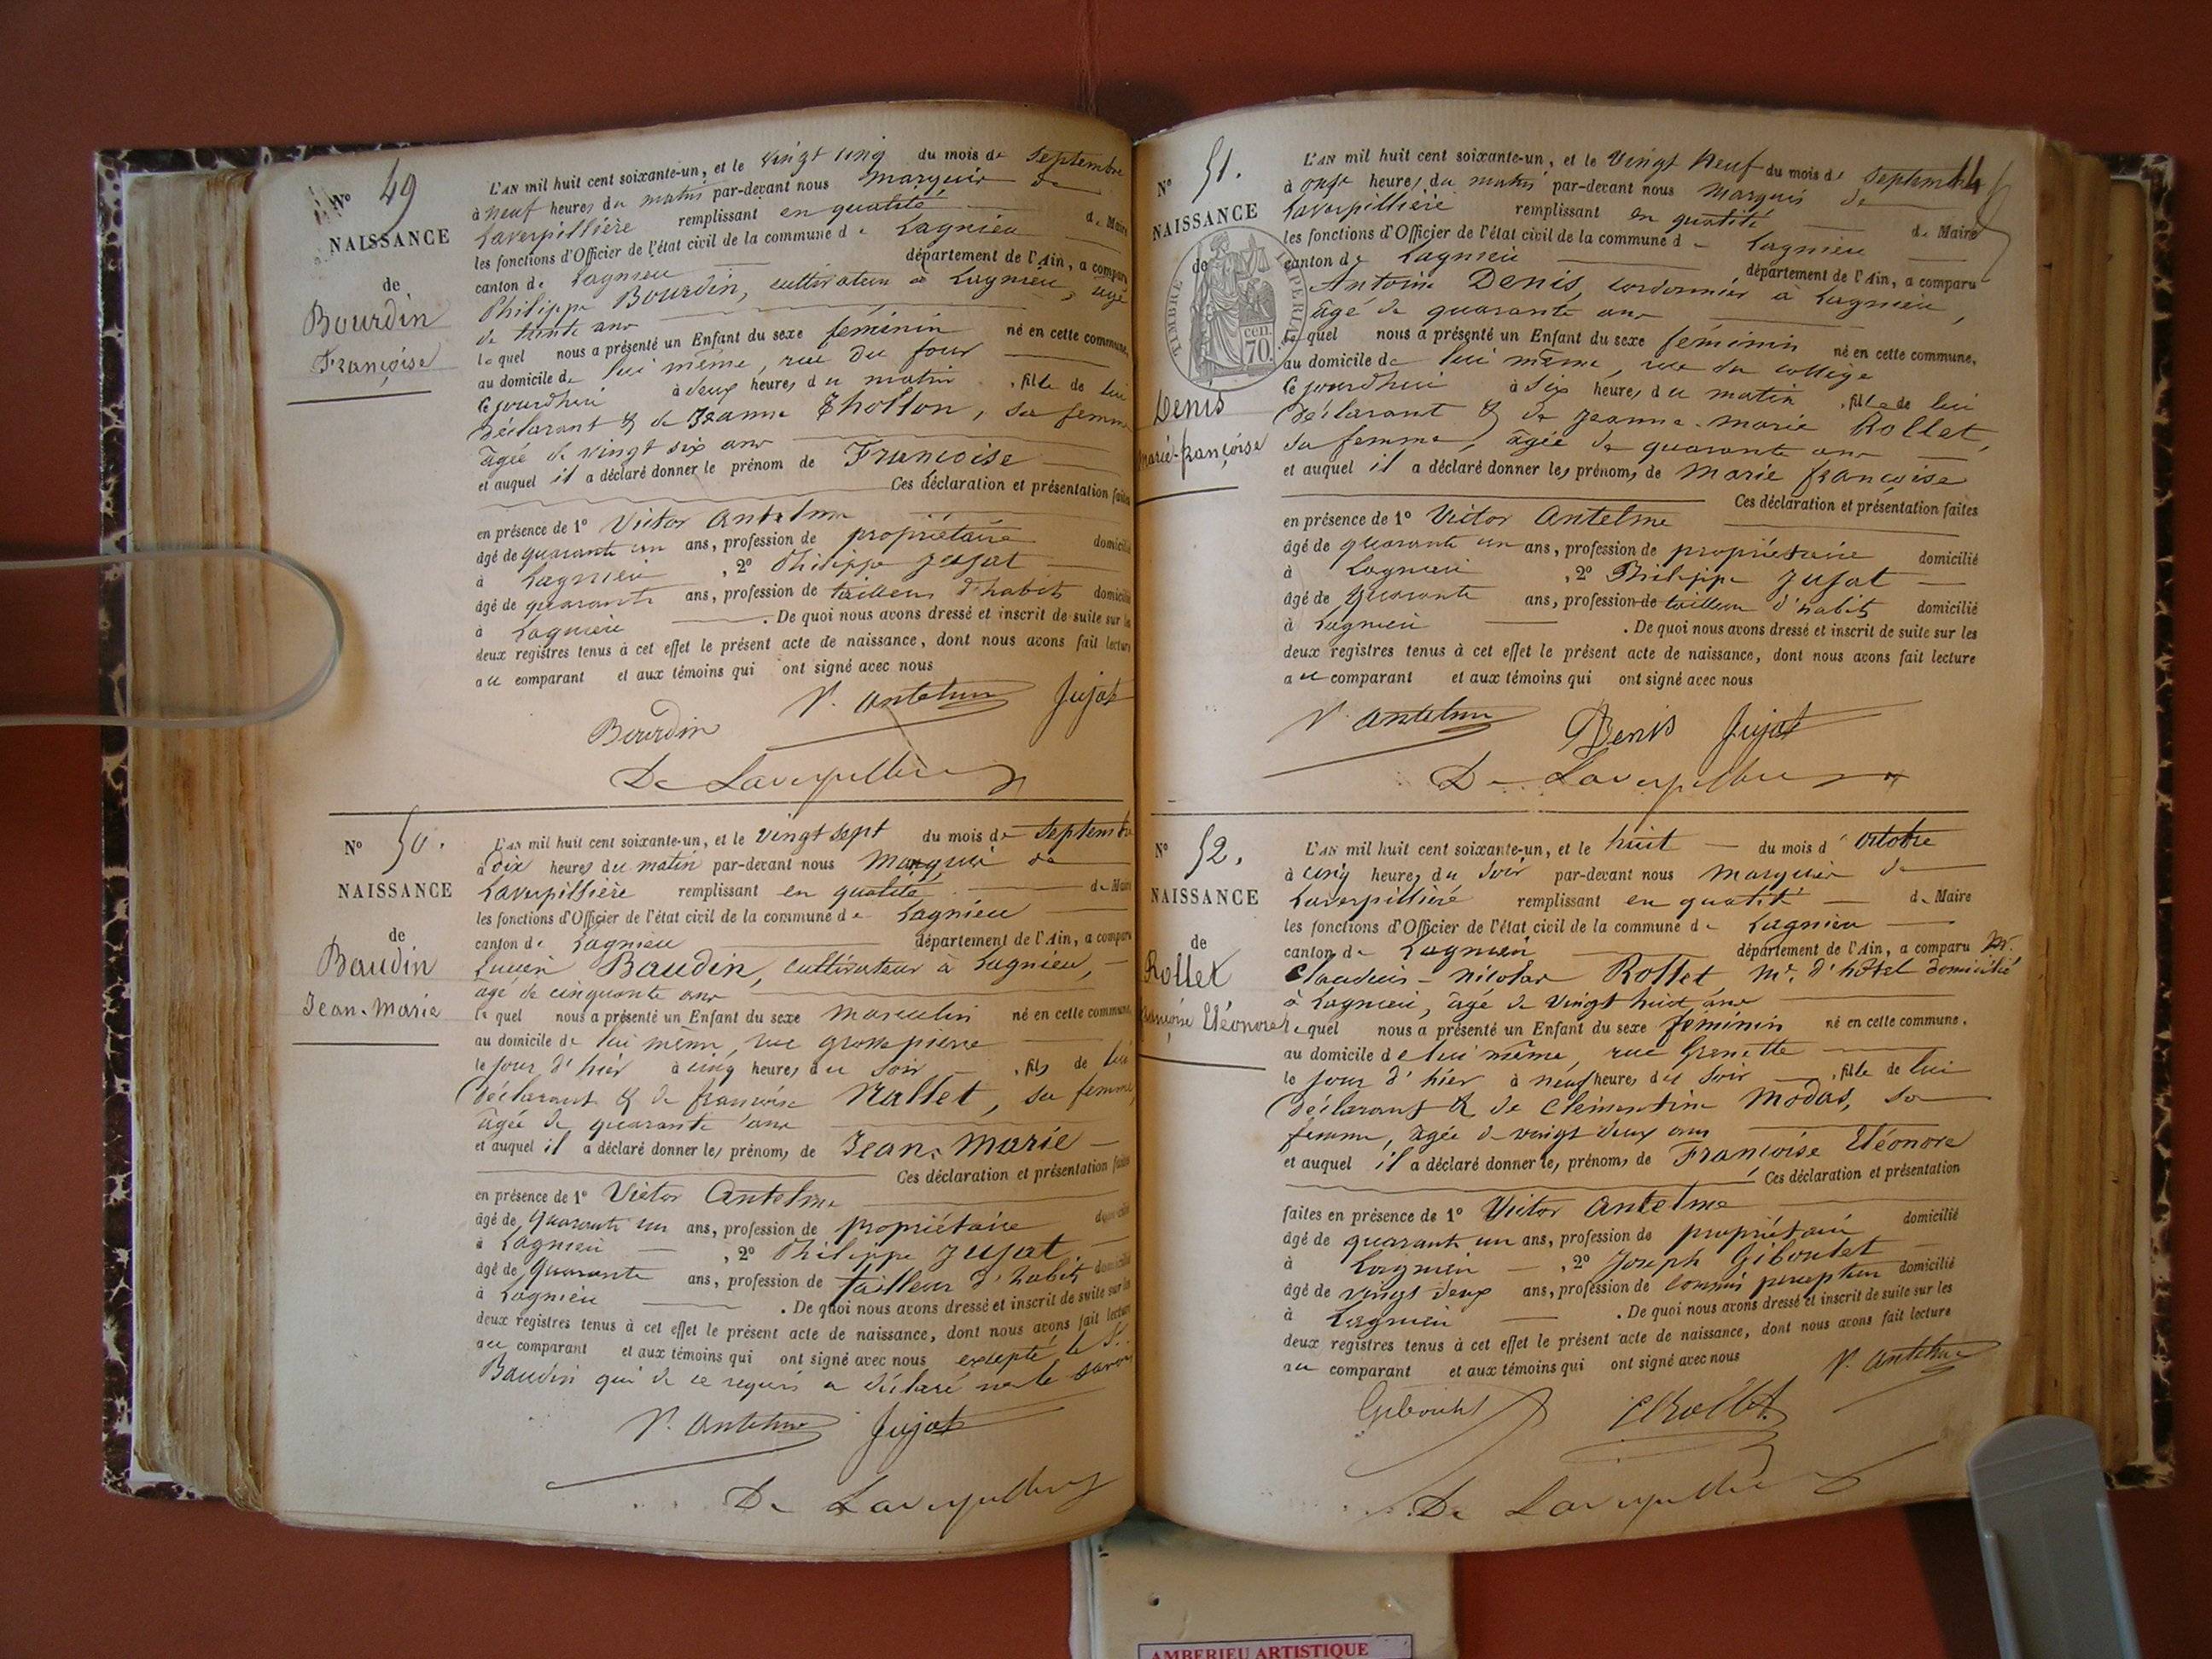 N° 49
NAISSANCE
de
Bourdin
Françoise
L'AN mil huit cent soixante-un, et le vingt cinq du mois de Septembre
à neuf heures du matin par-devant nous Marquis de
Laverpillière remplissant en qualité de Maire
les fonctions d'Officier de l'état civil de la commune de Lagnieu
canton de Lagnieu département de l'Ain, a comparu
Philippe Bourdin, cultivateur à Lagnieu, âgé
de trente ans
lequel nous a présenté un Enfant du sexe féminin né en cette commune,
au domicile de lui même, rue du four
Cejourdhui à deux heures du matin, fille de lui
Déclarant & de Jeanne Thollon, sa femme
âgée de vingt six ans
et auquel il a déclaré donner le prénom de Françoise
Ces déclaration et présentation faites
en présence de 1° Victor Antelme
âgé de quarante un ans, profession de propriétaire domicilié
à Lagnieu, 2° Philippe Jujat
âgé de quarante ans, profession de tailleur d'habits domicilié
à Lagnieu. De quoi nous avons dressé et inscrit de suite sur les
deux registres tenus à cet effet le présent acte de naissance, dont nous avons fait lecture
au comparant et aux témoins qui ont signé avec nous
V. Antelme Jujat
Bourdin
De Laverpillière
N° 50.
NAISSANCE
de
Baudin
Jean-Marie
L'AN mil huit cent soixante-un, et le vingt sept du mois de Septembre
à dix heures du matin par-devant nous Marquis de
Laverpillière remplissant en qualité de Maire
les fonctions d'Officier de l'état civil de la commune de Lagnieu
canton de Lagnieu département de l'Ain, a comparu
Lucien Baudin, cultivateur à Lagnieu,
âgé de cinquante ans
lequel nous a présenté un Enfant du sexe masculin né en cette commune,
au domicile de lui même, rue grosse pierre
le jour d'hier à cinq heures du soir, fils de lui
Déclarant & de françoise Nallet, sa femme,
âgée de quarante ans
et auquel il a déclaré donner les prénoms de Jean-Marie
Ces déclaration et présentation faites
en présence de 1° Victor Antelme
âgé de quarante un ans, profession de propriétaire domicilié
à Lagnieu, 2° Philippe Jujat
âgé de Quarante ans, profession de tailleur d'habits domicilié
à Lagnieu. De quoi nous avons dressé et inscrit de suite sur les
deux registres tenus à cet effet le présent acte de naissance, dont nous avons fait lecture
au comparant et aux témoins qui ont signé avec nous excepté le S.
Baudin qui de ce requis a déclaré ne le savoir
V. Antelme Jujat
De Laverpillière
N° 51.
NAISSANCE
de
TIMBRE IMPERIAL
cen. 70.
Denis
Marie-françoise
L'AN mil huit cent soixante-un, et le vingt Neuf du mois de Septembre
à onze heures du matin par-devant nous Marquis de
Laverpillière remplissant en qualité de Maire
les fonctions d'Officier de l'état civil de la commune de Lagnieu
canton de Lagnieu département de l'Ain, a comparu
Antoine Denis, cordonnier à Lagnieu,
âgé de quarante ans
lequel nous a présenté un Enfant du sexe féminin né en cette commune,
au domicile de lui même, rue du collège
Cejourdhui à six heures du matin, fille de lui
Déclarant & de Jeanne-Marie Rollet,
sa femme, âgée de quarante ans
et auquel il a déclaré donner les prénoms de Marie françoise
Ces déclaration et présentation faites
en présence de 1° Victor Antelme
âgé de quarante un ans, profession de propriétaire domicilié
à Lagnieu, 2° Philippe Jujat
âgé de Quarante ans, profession de tailleur d'habits domicilié
à Lagnieu. De quoi nous avons dressé et inscrit de suite sur les
deux registres tenus à cet effet le présent acte de naissance, dont nous avons fait lecture
au comparant et aux témoins qui ont signé avec nous
V. Antelme Denis Jujat
De Laverpillière
N° 52.
NAISSANCE
de
Rollet
Françoise Eléonore
L'AN mil huit cent soixante-un, et le huit du mois d'Octobre
à cinq heures du Soir par-devant nous Marquis de
Laverpillière remplissant en qualité de Maire
les fonctions d'Officier de l'état civil de la commune de Lagnieu
canton de Lagnieu département de l'Ain, a comparu Mr.
Claudius-Nicolas Rollet, Mtre d'hôtel domicilié
à Lagnieu, âgé de vingt huit ans
lequel nous a présenté un Enfant du sexe féminin né en cette commune,
au domicile de lui même, rue Grenette
le jour d'hier à neuf heures du Soir, fille de lui
Déclarant & de Clémentine Modas, sa
femme, âgée de vingt deux ans
et auquel il a déclaré donner les prénoms de Françoise Eléonore
Ces déclaration et présentation
faites en présence de 1° Victor Antelme
âgé de quarante un ans, profession de propriétaire domicilié
à Lagnieu, 2° Joseph Giboulet
âgé de vingt deux ans, profession de commis percepteur domicilié
à Lagnieu. De quoi nous avons dressé et inscrit de suite sur les
deux registres tenus à cet effet le présent acte de naissance, dont nous avons fait lecture
au comparant et aux témoins qui ont signé avec nous V. Antelme
Giboulet Rollet
De Laverpillière
AMBERIEU ARTISTIQUE